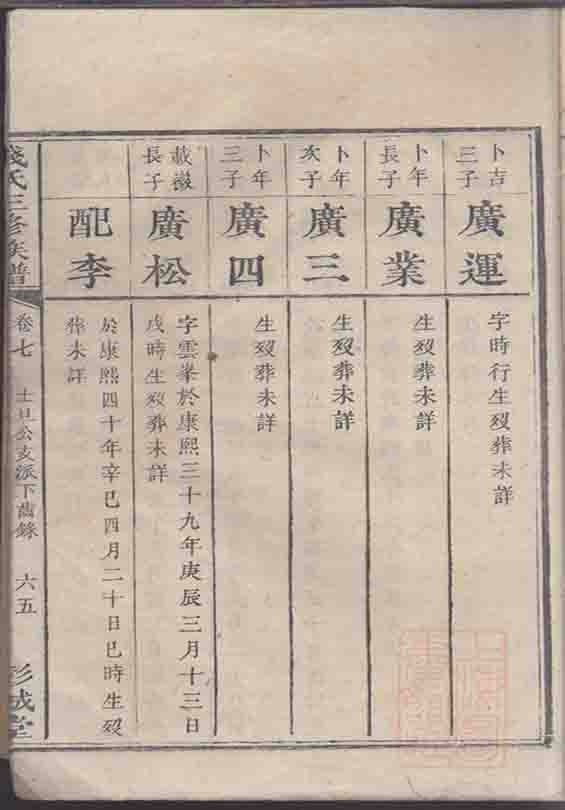 卜吉
三子
廣運
字時行生歿葬未詳
卜年
長子
廣業
生歿葬未詳
卜年
次子
廣三
生歿葬未詳
卜年
三子
廣四
生歿葬未詳
載嶶
長子
廣松
字雲峯於康熙三十九年庚辰三月十三日
戌時生歿葬未詳
配李
於康熙四十年辛巳四月二十日巳時生歿
葬未詳
錢氏三修族譜
卷七
士旦公支派下齒錄
六五
彭城堂